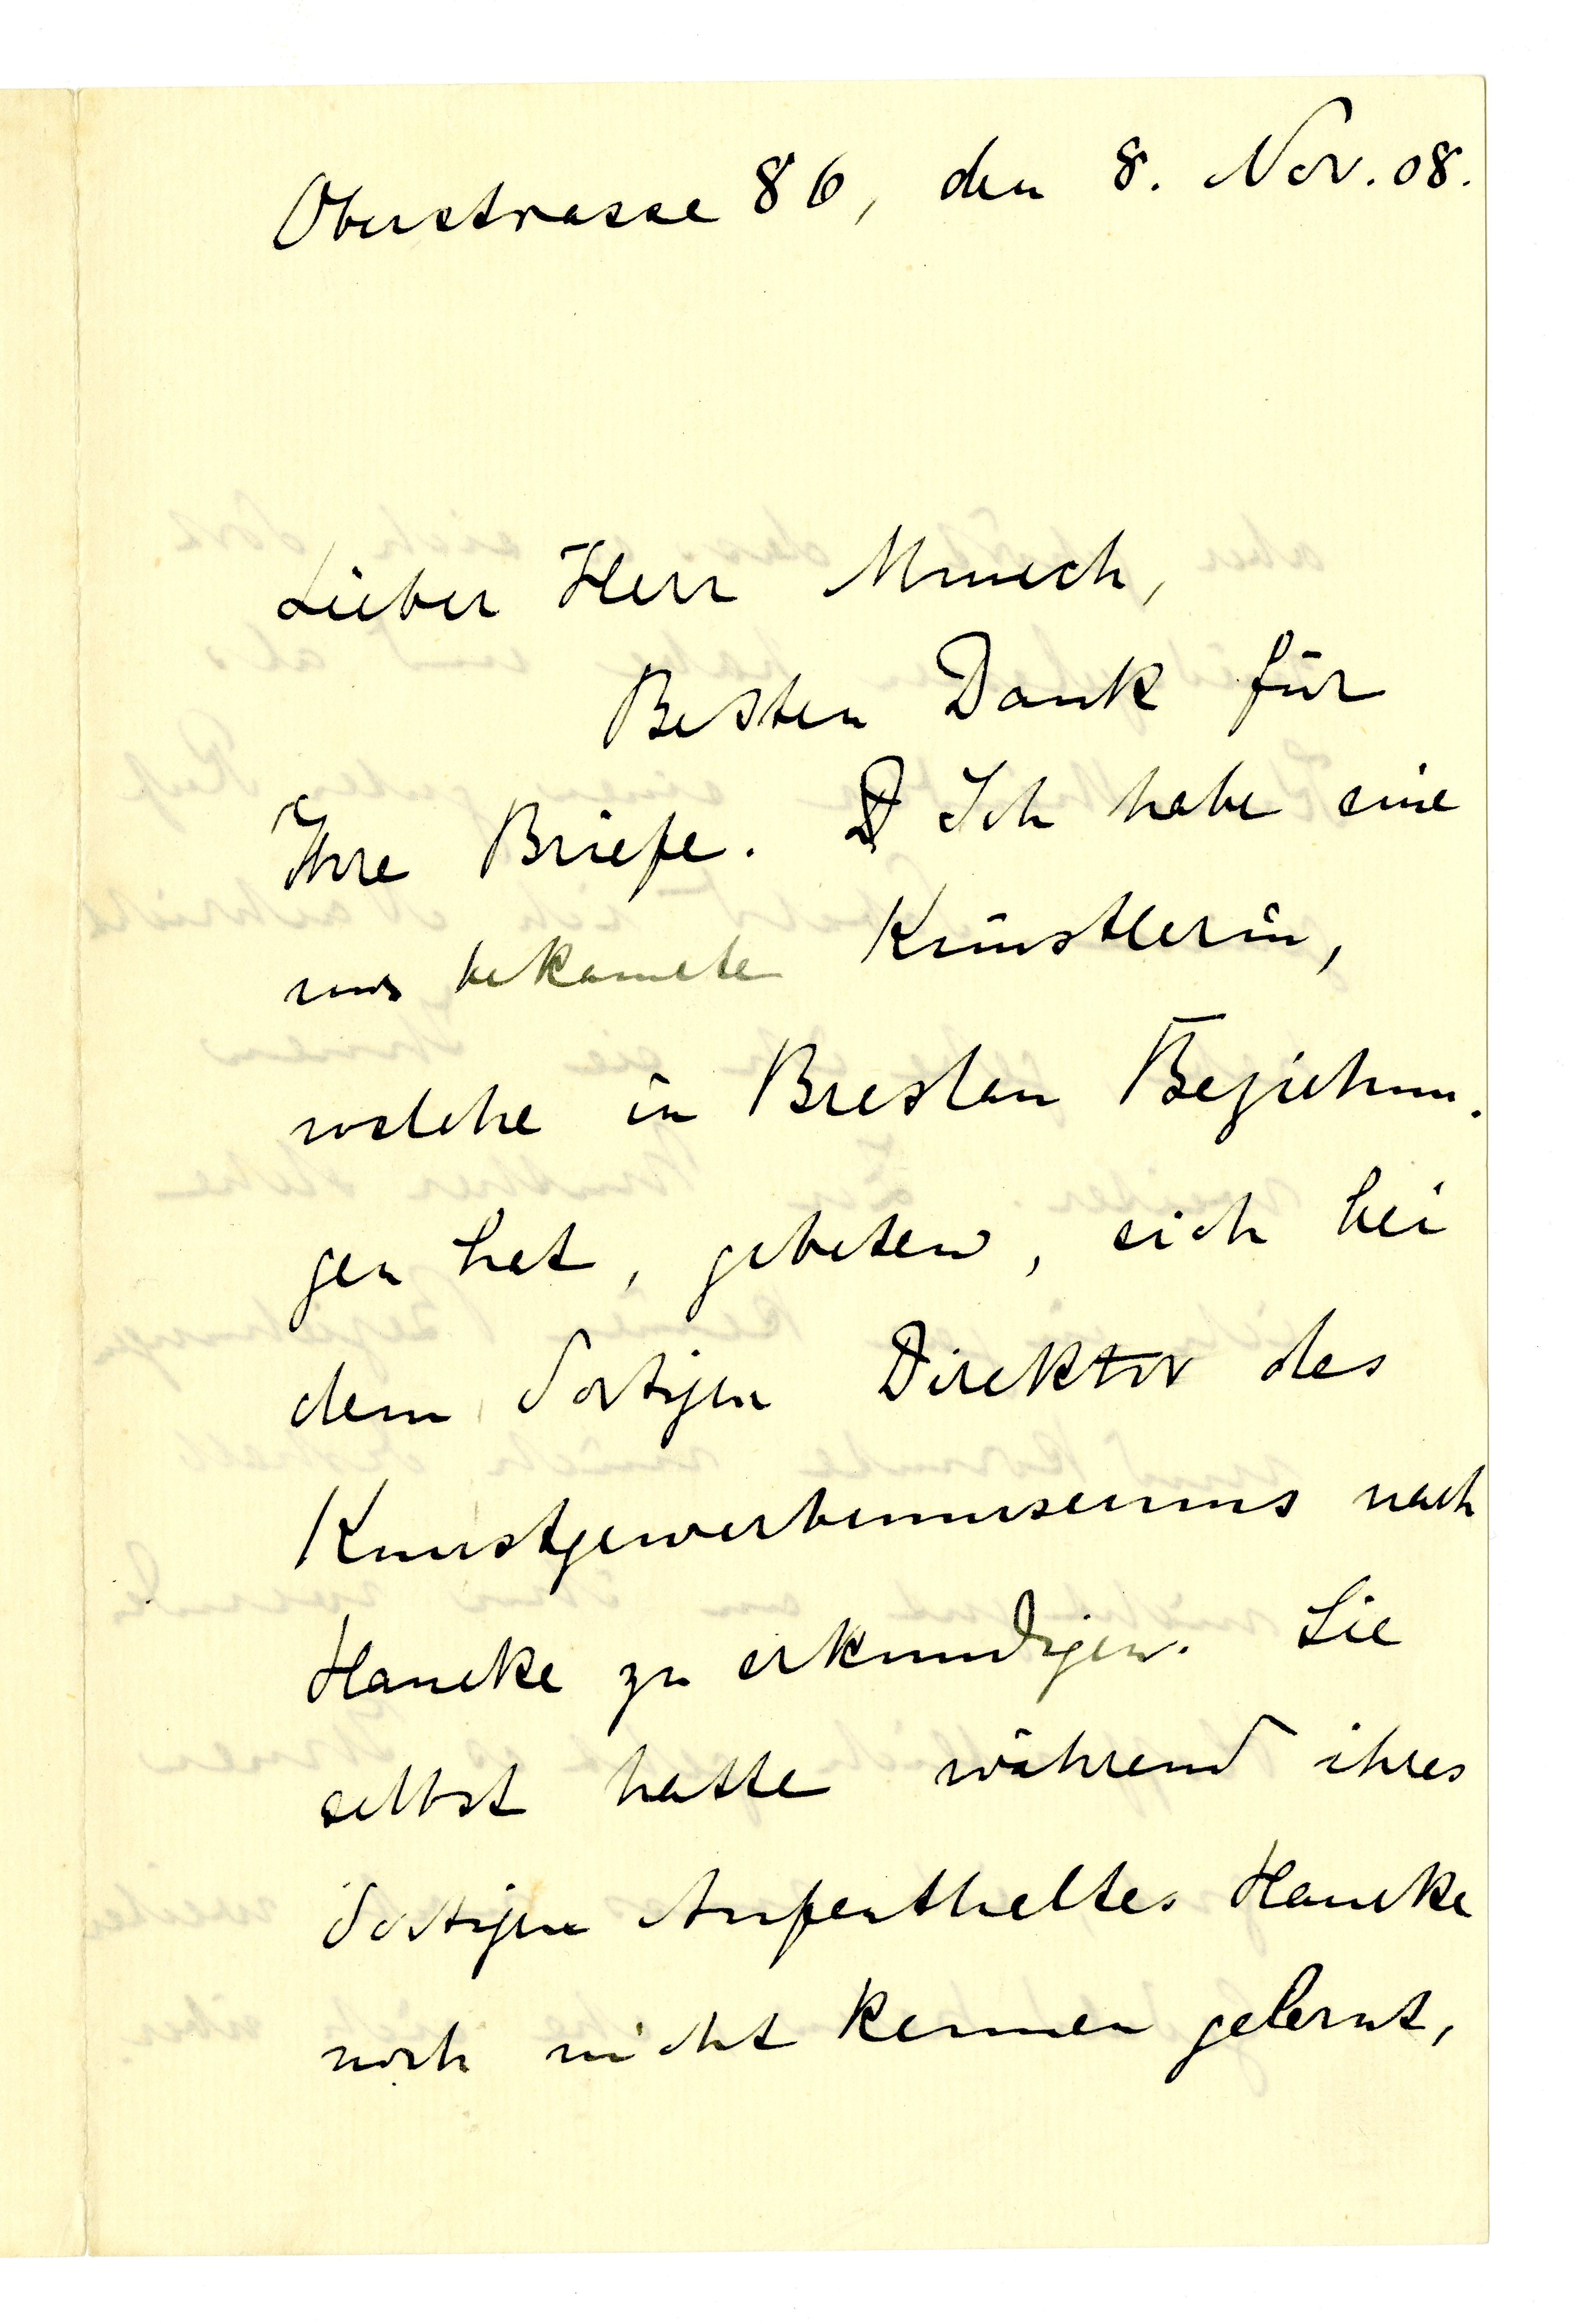 Oberstrasse 86, den 8. Nov. 08.
Lieber Herr Munch,
Besten Dank für
Ihre Briefe. D Ich habe eine
uns bekannte Künstlerin,
welche in Breslau Beziehun.
gen hat, gebeten, sich bei
dem dortigen Direktor des
Kunstgewerbemuseums nach
Haneke zu erkundigen. Sie
selbst hatte während ihres
dortigen Aufenthaltes Haneke
noch nicht kennen gelernt,